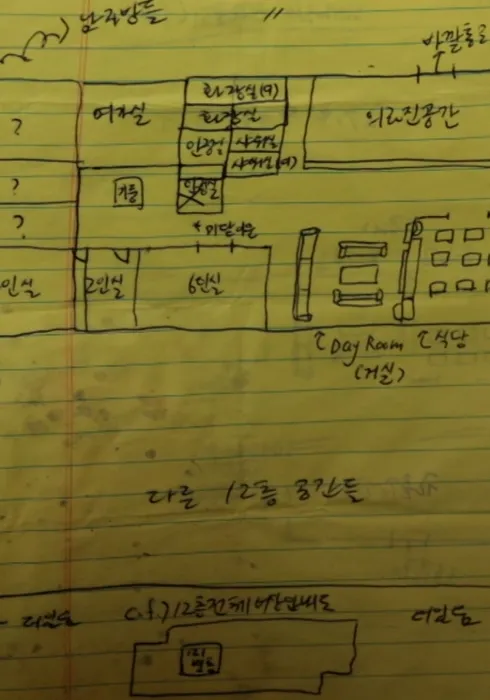 바깥통로
?
여자실
화장실(여)
화장실
의료진공간
안정실 샤워실
샤워실(여)
?
기둥
안정실
?
*미닫이문
인실
2인실
6인실
↑Day Room
(거실)
↑식당
다른 12층 공간들
c.f.) 12층전체
병동